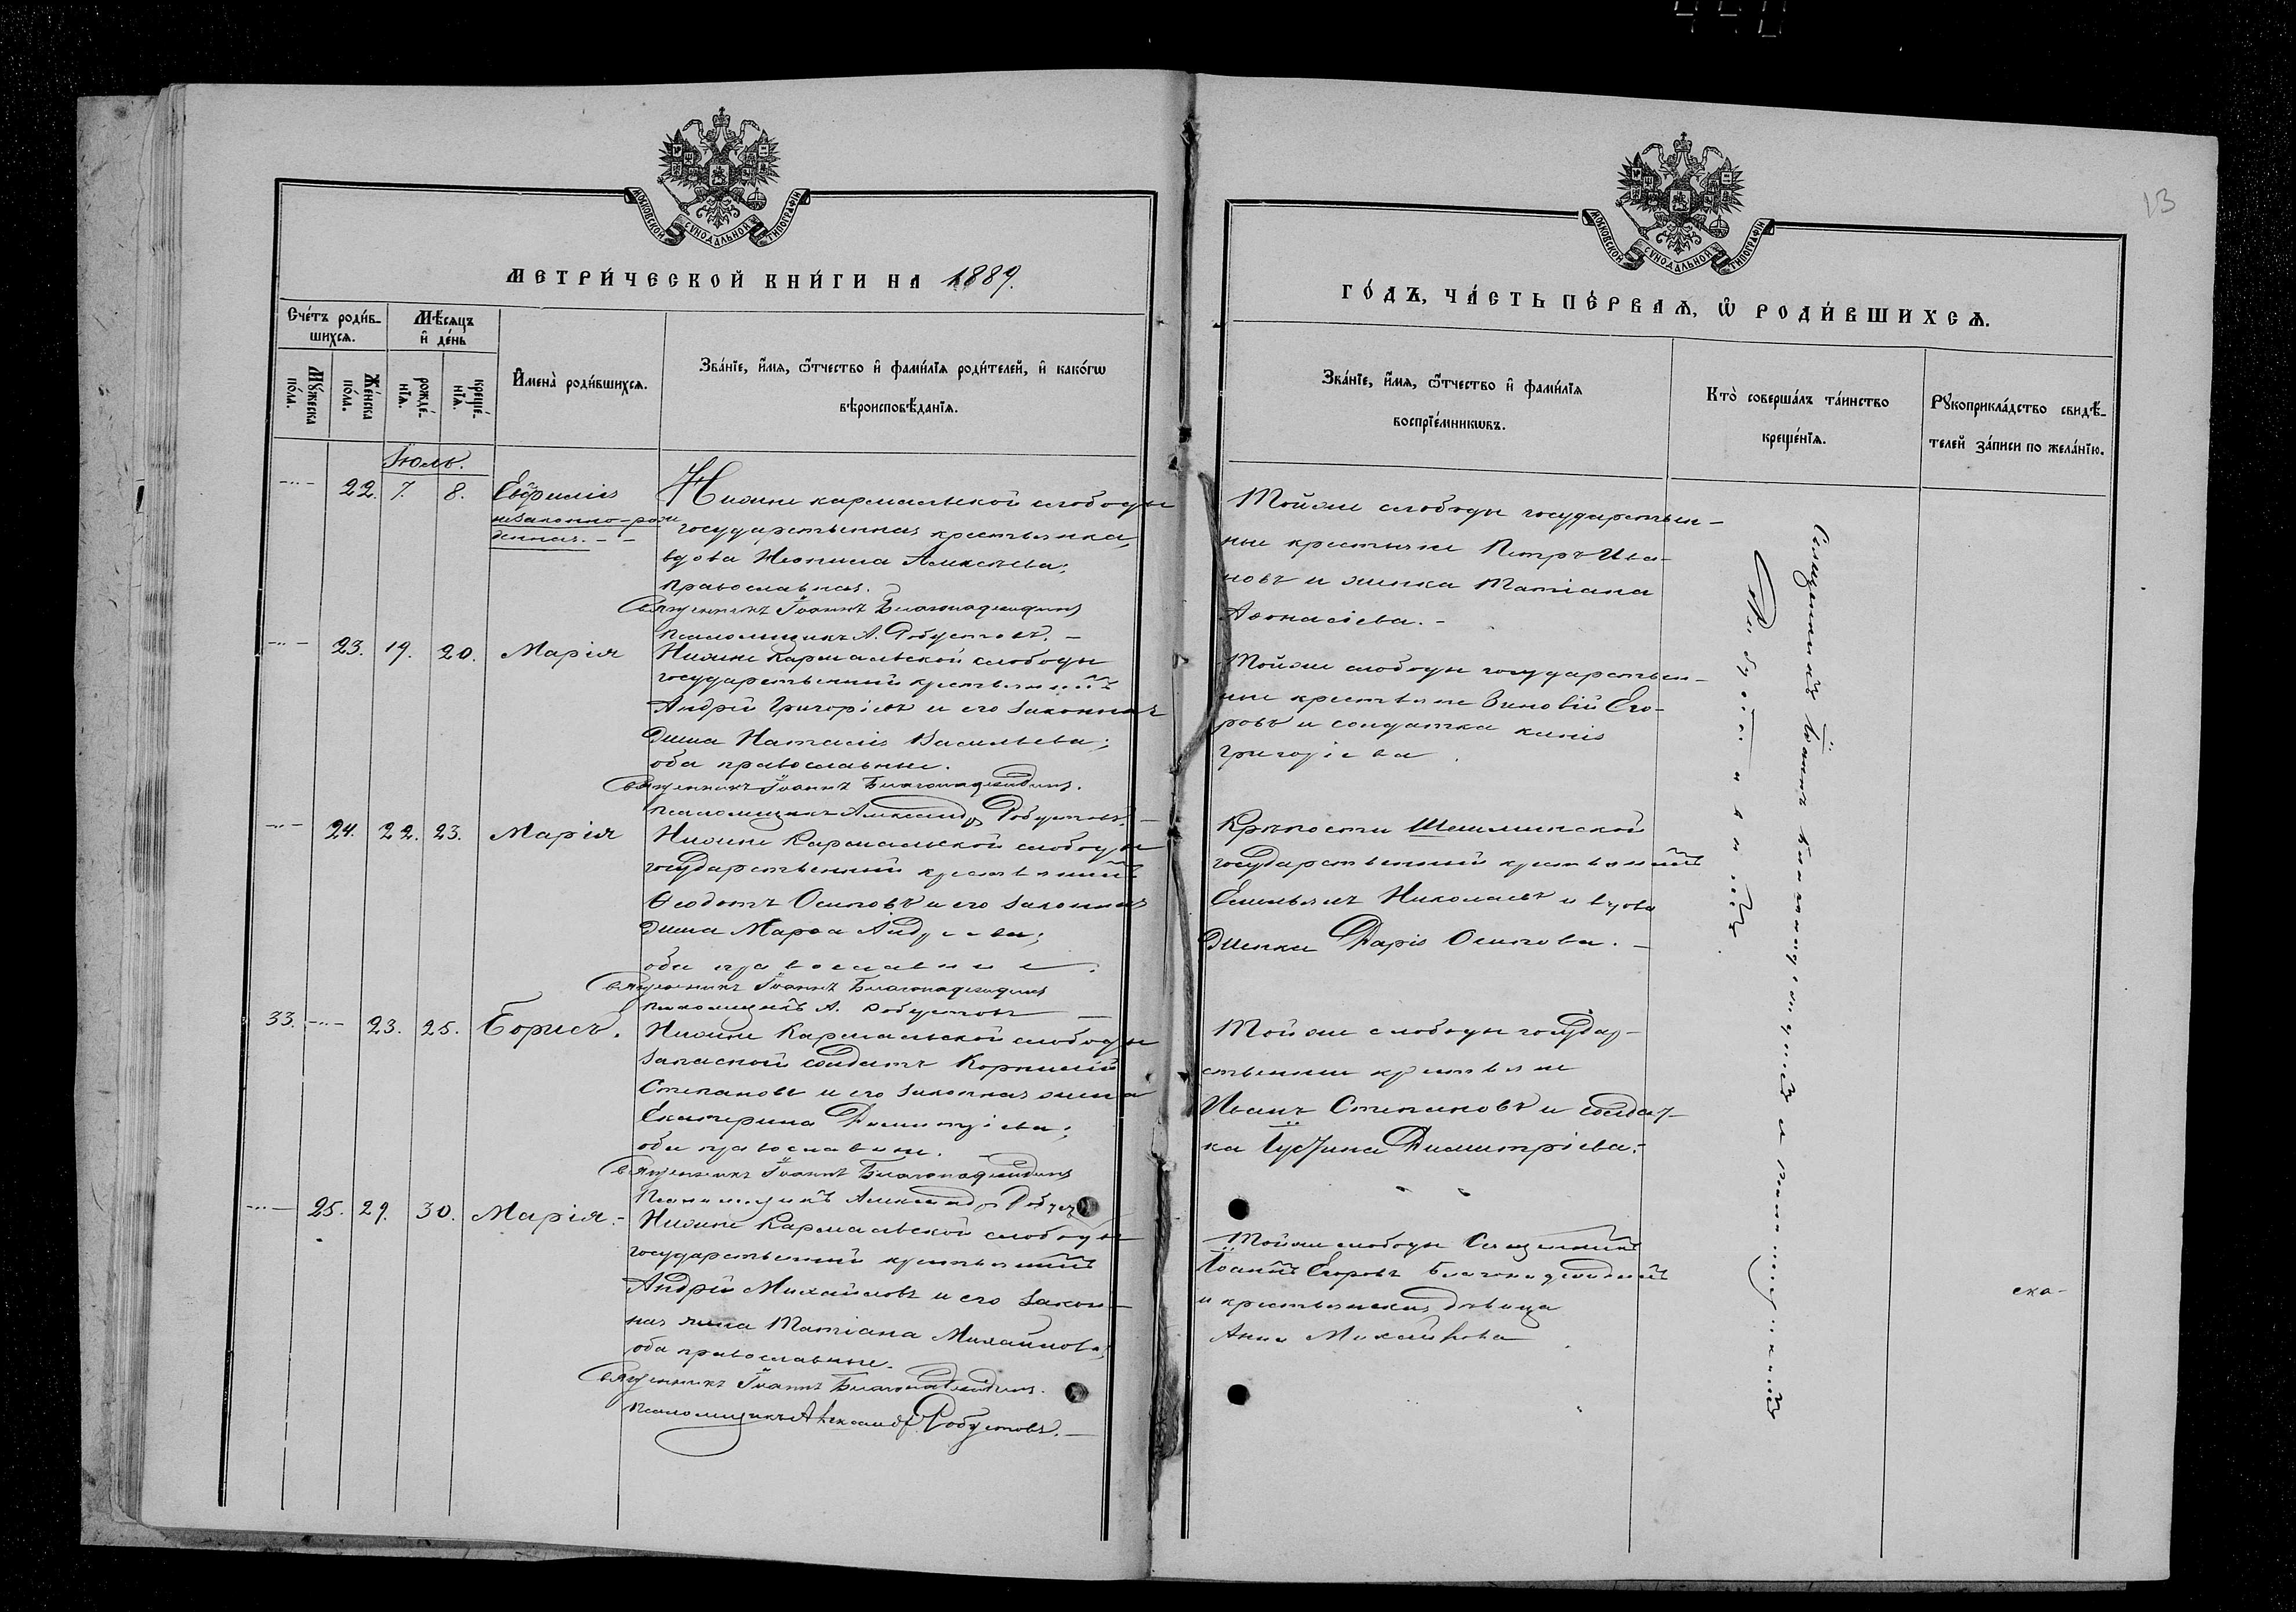 13
МОСКОВСКОЙ СѴНОДАЛЬНОЙ ТИПОГРАФІИ
МЕТРИ́ЧЕСКОЙ КНИ́ГИ НА 1889.
Сче́тъ роди́вшихсѧ.
Мꙋ́жеска по́ла.
Же́нска по́ла.
Мѣ́сѧцъ и҆ де́нь
рожде́нїѧ.
креще́нїѧ.
И҆мена̀ роди́вшихсѧ.
Зва́нїе, и҆́мѧ, ѻ҆́тчество и҆ фами́лїѧ роди́телей, и҆ како́гѡ
вѣроисповѣ́данїѧ.
Іюль.
22. 7. 8. Евфимія
незаконно-рож
денная.
Нижне кармальской слободы
государственная крестьянка,
вдова Неонила Алексѣева;
православная.
Священникъ Іоаннъ Благонадеждинъ
Псаломщикъ А. Робустовъ.
23. 19. 20. Марія
Нижне Кармальской слободы
государственный крестьянинъ
Андрей Григорьевъ и его законная
жена Наталія Васильева;
оба православные.
Священникъ Іоаннъ Благонадеждинъ.
Псаломщикъ Александръ Робустовъ.
24. 22. 23. Марія
Нижне Кармальской слободы
государственный крестьянинъ
Ѳеодотъ Осиповъ и его законная
жена Марѳа Андреева;
оба православные.
Священникъ Іоаннъ Благонадеждинъ
Псаломщикъ А. Робустовъ
33. 23. 25. Борисъ.
Нижне Кармальской слободы
запасной солдатъ Корнилій
Степановъ и его законная жена
Екатерина Димитріева;
оба православные.
Священникъ Іоаннъ Благонадеждинъ
Псаломщикъ Александръ
25. 29. 30. Марія.
Нижне Кармальской слободы
государственный крестьянинъ
Андрей Михайловъ и его закон-
ная жена Татіана Михайлова;
оба православные.
Священникъ Іоаннъ Благонадеждинъ.
Псаломщикъ Александръ Робустовъ.
МОСКОВСКОЙ СѴНОДАЛЬНОЙ ТИПОГРАФІИ
ГО́ДЪ, ЧА́СТЬ ПЕ́РВАѦ, Ѡ҆ РОДИ́ВШИХСѦ.
Зва́нїе, и҆́мѧ, ѻ҆́тчество и҆ фами́лїѧ
воспрїе́мникѡвъ.
Кто̀ соверша́лъ та́инство
креще́нїѧ.
Рꙋкоприкла́дство свидѣ́-
телей за́писи по жела́нїю.
Той же слободы государствен-
ные крестьяне Петръ Ива-
новъ и женка Татіана
Аѳонасіева.
Той же слободы государствен-
ные крестьяне Зиновій Его-
ровъ и солдатка
Григоріева
Крѣпости Шешминской
государственный крестьянинъ
Емельянъ Николаевъ и вдова
женка Дарія Осипова.
Той же слободы государ-
ственные крестьяне
Иванъ Степановъ и солдат-
ка Іустина Димитріева.
Той же слободы Священникъ
Іоаннъ Егоровъ Благонадеждинъ
и крестьянская дѣвица
Анна Михайлова
Священникъ Іоаннъ Благонадеждинъ и псаломщикъ
Робустовъ.